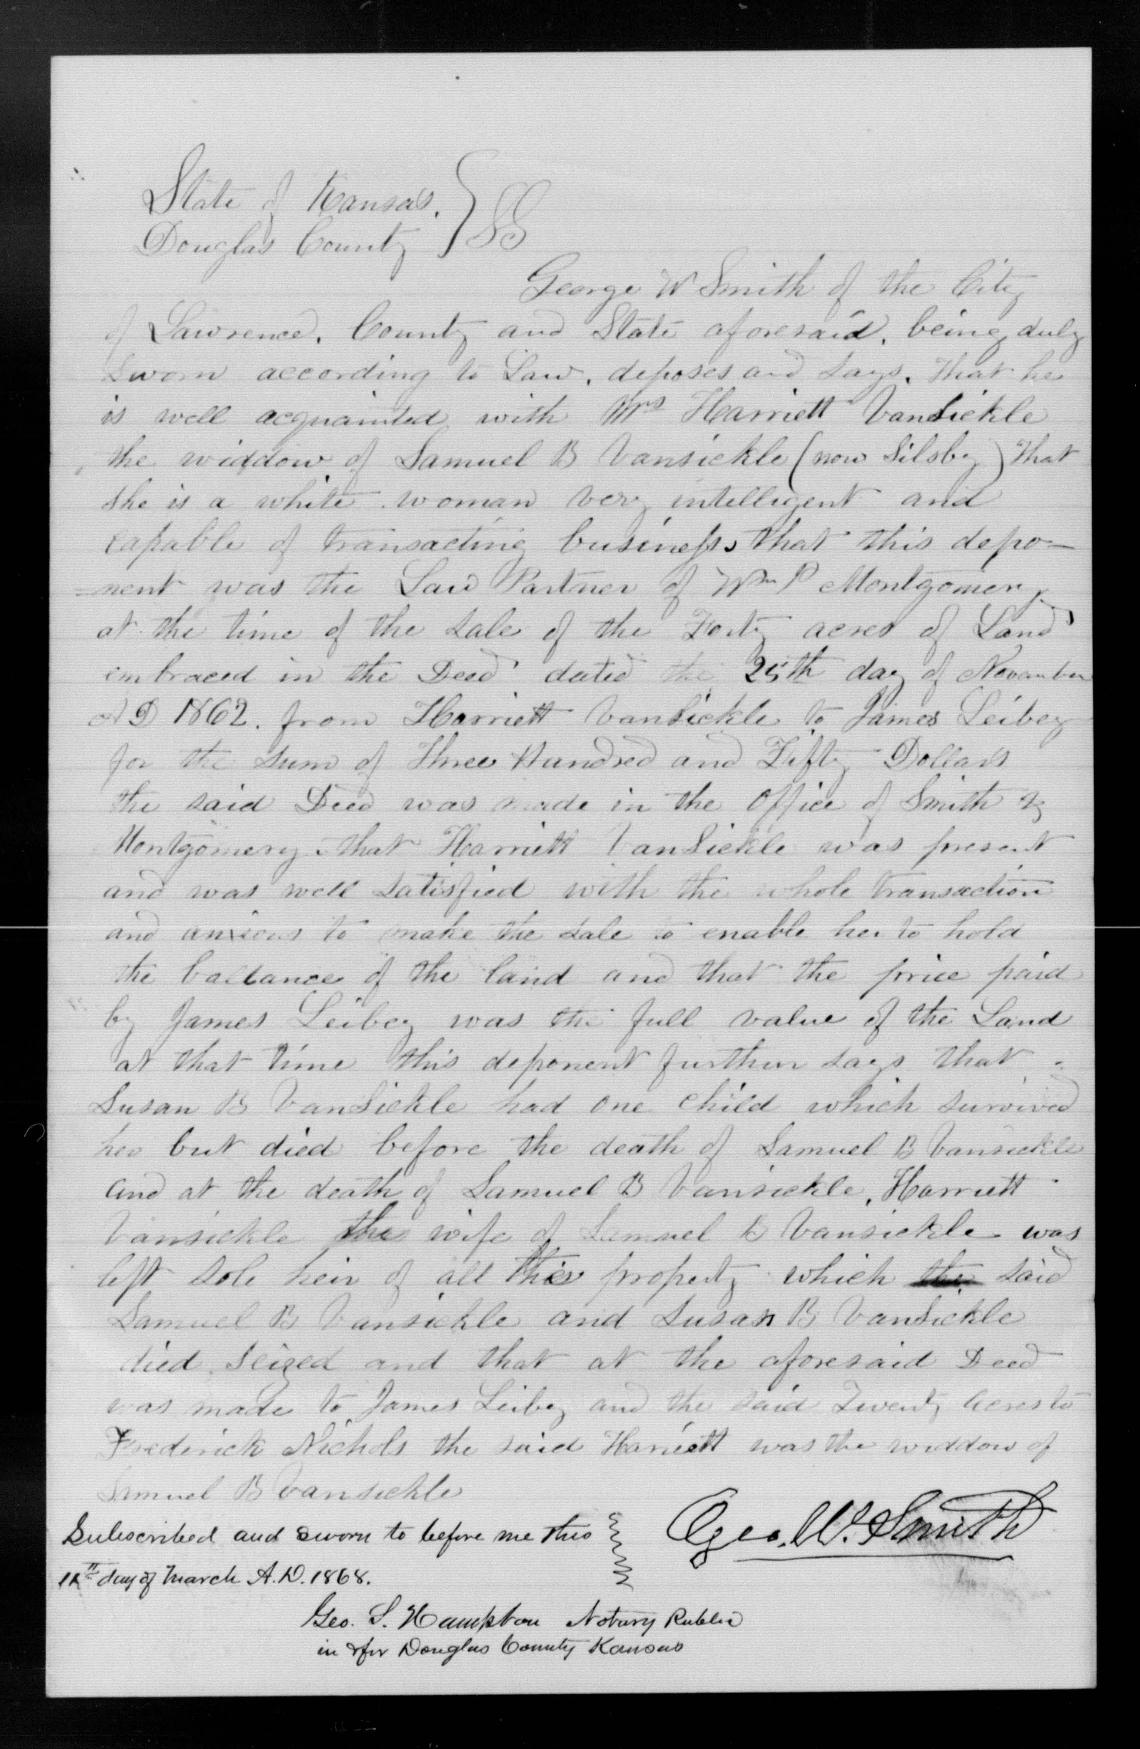 State of Kansas. } SS
Douglas County
George W Smith of the City
of Lawrence, County and State aforesaid, being duly
sworn according to Law, deposes and says, that he
is well acquainted with Mrs Harriett VanSickle
the widdow of Samuel B Vansickle (now Silsby) that
she is a white woman very intelligent and
capable of transacting business, that this depo-
=nent was the Law Partner of Wm P Montgomery
at the time of the sale of the Forty acres of Land
embraced in the Deed dated the 25th day of November
A D 1862. from Harriett VanSickle to James Leibey
for the sum of Three Hundred and Fifty Dollars
the said Deed was made in the office of Smith &
Montgomery that Harriett VanSickle was present
and was well satisfied with the whole transaction
and anxious to make the sale to enable her to hold
the ballance of the land and that the price paid
by James Leibey was the full value of the Land
at that time this deponent further says that
Susan B VanSickle had one child which survived
her but died before the death of Samuel B Vansickle
and at the death of Samuel B Vansickle, Harriett
Vansickle the wife of Samuel B Vansickle was
left sole heir of all the property which the said
Samuel B Vansickle and Susan B VanSickle
died seized and that at the aforesaid Deed
was made to James Leibey and the said Twenty acres to
Frederick Nichols the said Harriett was the widdow of
Samuel B Vansickle
Geo. W. Smith
Subscribed and sworn to before me this
day of March A.D. 1868.
Geo. S. Hampton Notary Public
in & for Douglas County Kansas